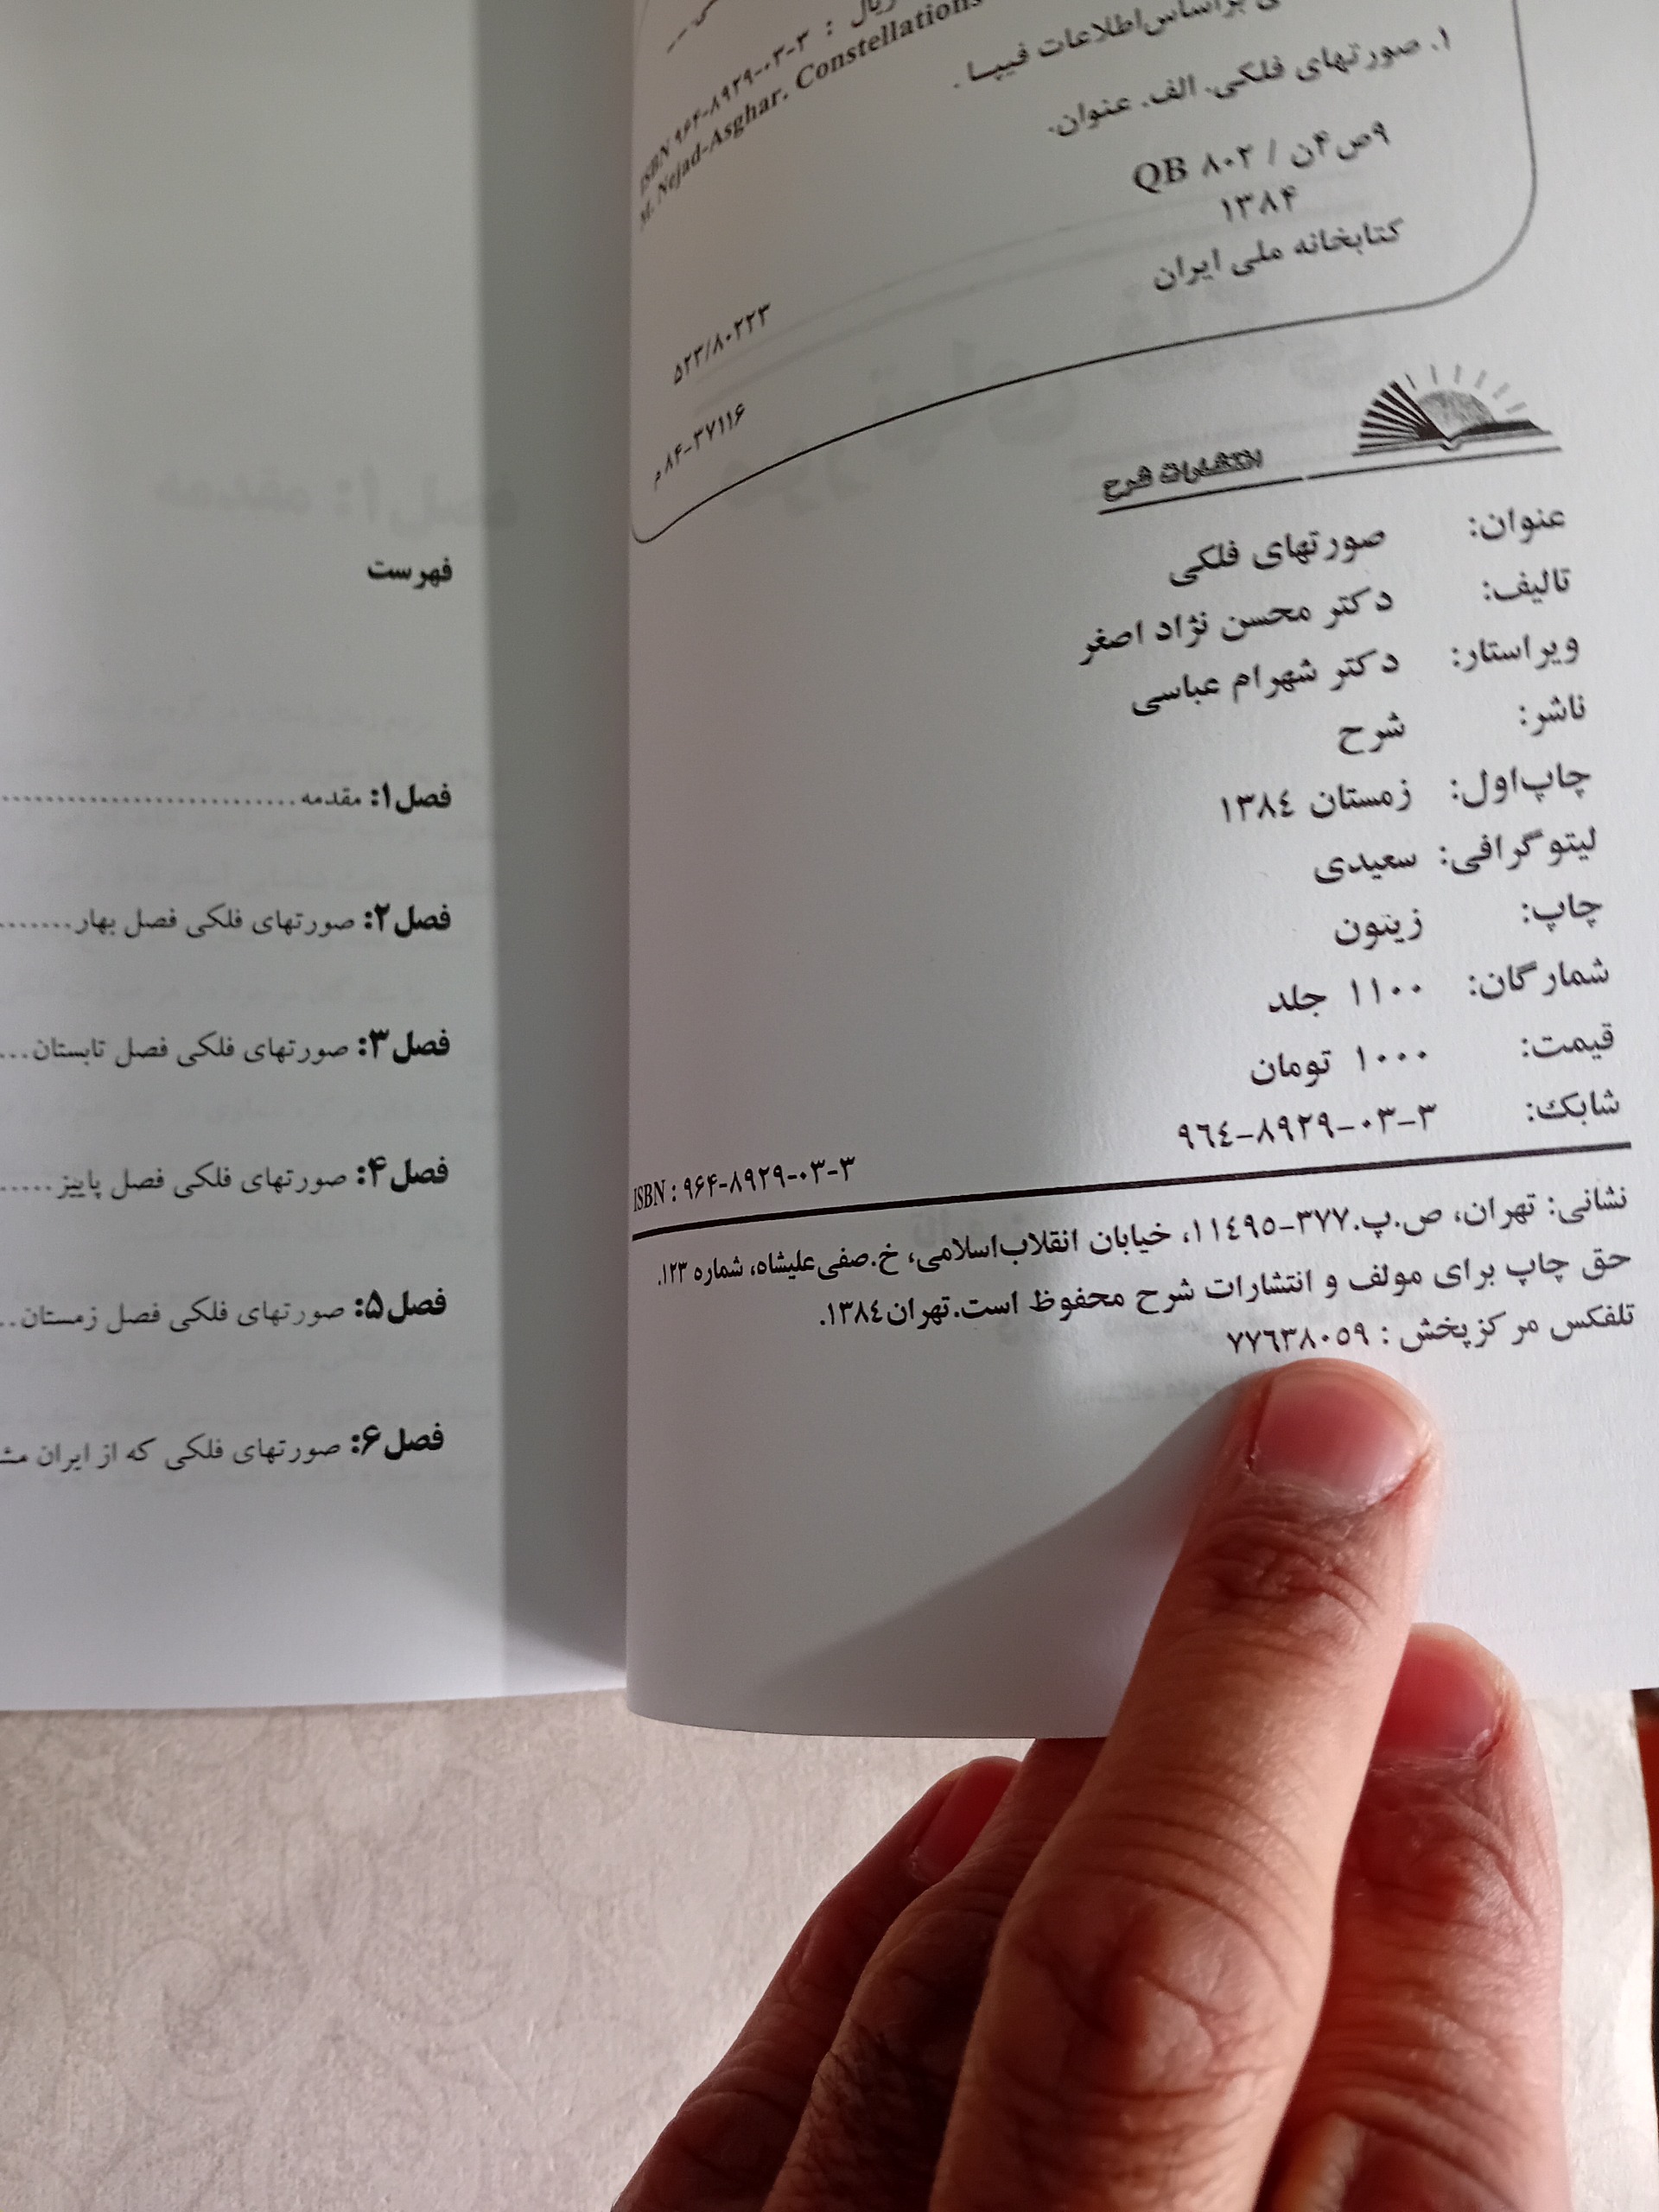 ISBN ۹۶۴-۸۹۲۹-۰۳-۳ :
M. Nejad-Asghar. Constellations
براساس‌اطلاعات فیپا .
۱. صورتهای فلکی. الف. عنوان.
۹ص۴ن / ۸۰۲ QB
۱۳۸۴
۵۲۳/۸۰۲۲۳
کتابخانه ملی ایران
۸۴-۳۷۱۱۶م
انتشارات شرح
عنوان: صورتهای فلکی
تالیف: دکتر محسن نژاد اصغر
ویراستار: دکتر شهرام عباسی
ناشر: شرح
چاپ‌اول: زمستان ١٣٨٤
لیتوگرافی: سعیدی
چاپ: زیتون
شمارگان: ١١٠٠ جلد
قیمت: ١٠٠٠ تومان
شابک: ٩٦٤-٨٩٢٩-٠٣-٣
ISBN : ۹۶۴-۸۹۲۹-۰۳-۳
نشانی: تهران، ص.پ.٣٧٧-١١٤٩٥، خیابان انقلاب‌اسلامی، خ.صفی‌علیشاه، شماره ١٢٣.
حق چاپ برای مولف و انتشارات شرح محفوظ است.تهران١٣٨٤.
تلفکس مرکزپخش : ٧٧٦٣٨٠٥٩
فهرست
فصل۱: مقدمه
فصل۲: صورتهای فلکی فصل بهار
فصل۳: صورتهای فلکی فصل تابستان
فصل۴: صورتهای فلکی فصل پاییز
فصل۵: صورتهای فلکی فصل زمستان
فصل۶: صورتهای فلکی که از ایران